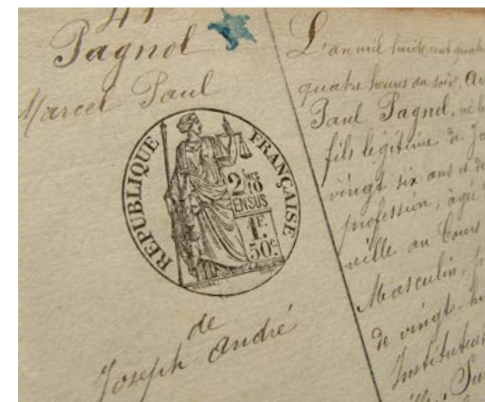 41
Pagnol
Marcel Paul
RÉPUBLIQUE FRANÇAISE
2/10
EN SUS
1F.
50c
de
Joseph André
L'an mil huit cent quat
quatre heures du soir,
Paul Pagnol, né
fils légitime de Jo
vingt six ans et de
profession, âgé
ville au Cours
Masculin,
de vingt-hu
Instituteur